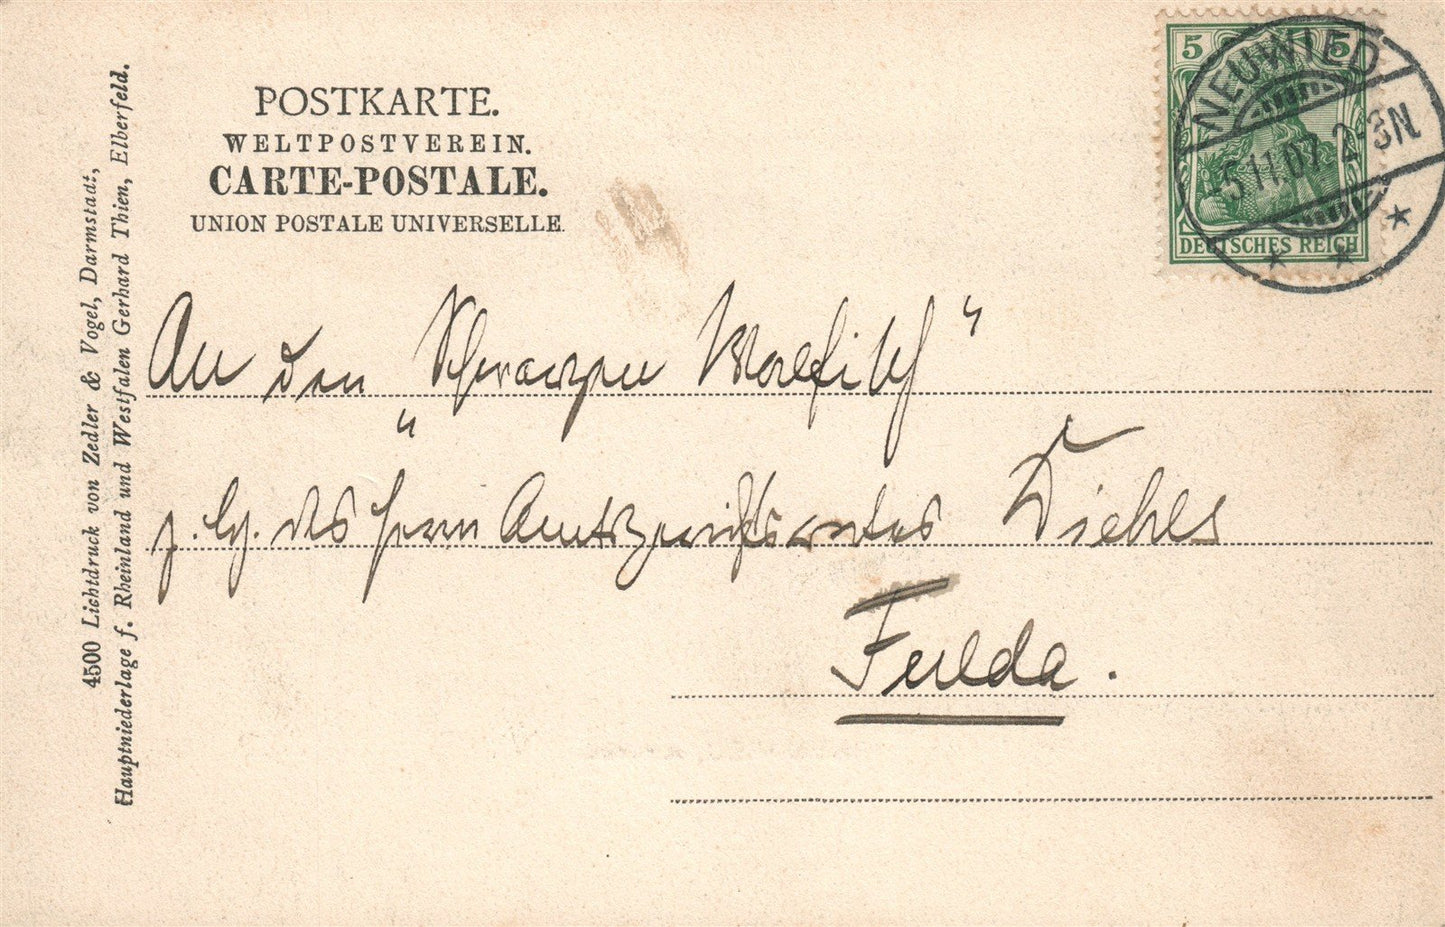 POSTKARTE.
WELTPOSTVEREIN.
CARTE-POSTALE.
UNION POSTALE UNIVERSELLE.
5 5
DEUTSCHES REICH
NEUWIED
5.11.07. 2-3N.
An den „Schwarzen Walfisch“
z. Hd. des Herrn Amtsgerichtsrates Diehls
Fulda.
4500 Lichtdruck von Zedler & Vogel, Darmstadt,
Hauptniederlage f. Rheinland und Westfalen Gerhard Thien, Elberfeld.